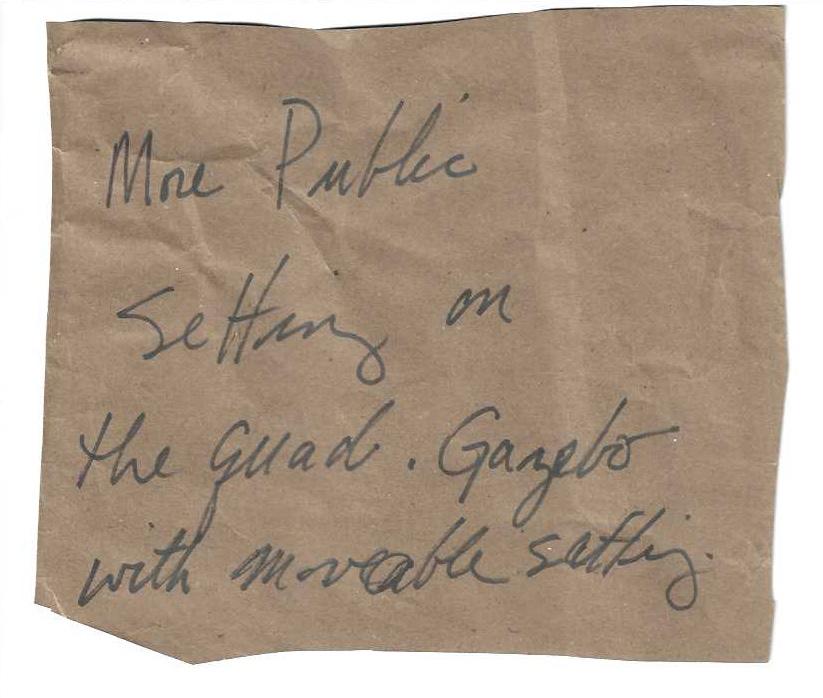 More Public
Setting on
the Quad. Gazebo
with moveable setting.